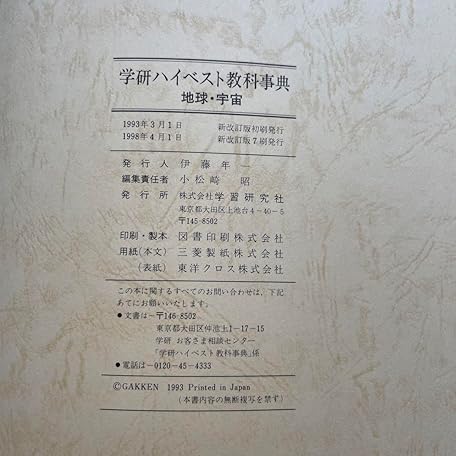 学研ハイベスト教科事典
地球・宇宙
1993年3月1日 新改訂版初刷発行
1998年4月1日 新改訂版7刷発行
発行人 伊藤年一
編集責任者 小松崎 昭
発行所 株式会社学習研究社
東京都大田区上池台4-40-5
〒145-8502
印刷・製本 図書印刷株式会社
用紙(本文) 三菱製紙株式会社
(表紙) 東洋クロス株式会社
この本に関するすべてのお問い合わせは、下記
あてにお願いいたします。
●文書は―〒146-8502
東京都大田区仲池上1-17-15
学研 お客さま相談センター
「学研ハイベスト教科事典」係
●電話は―0120-45-4333
©GAKKEN 1993 Printed in Japan
(本書内容の無断複写を禁す)